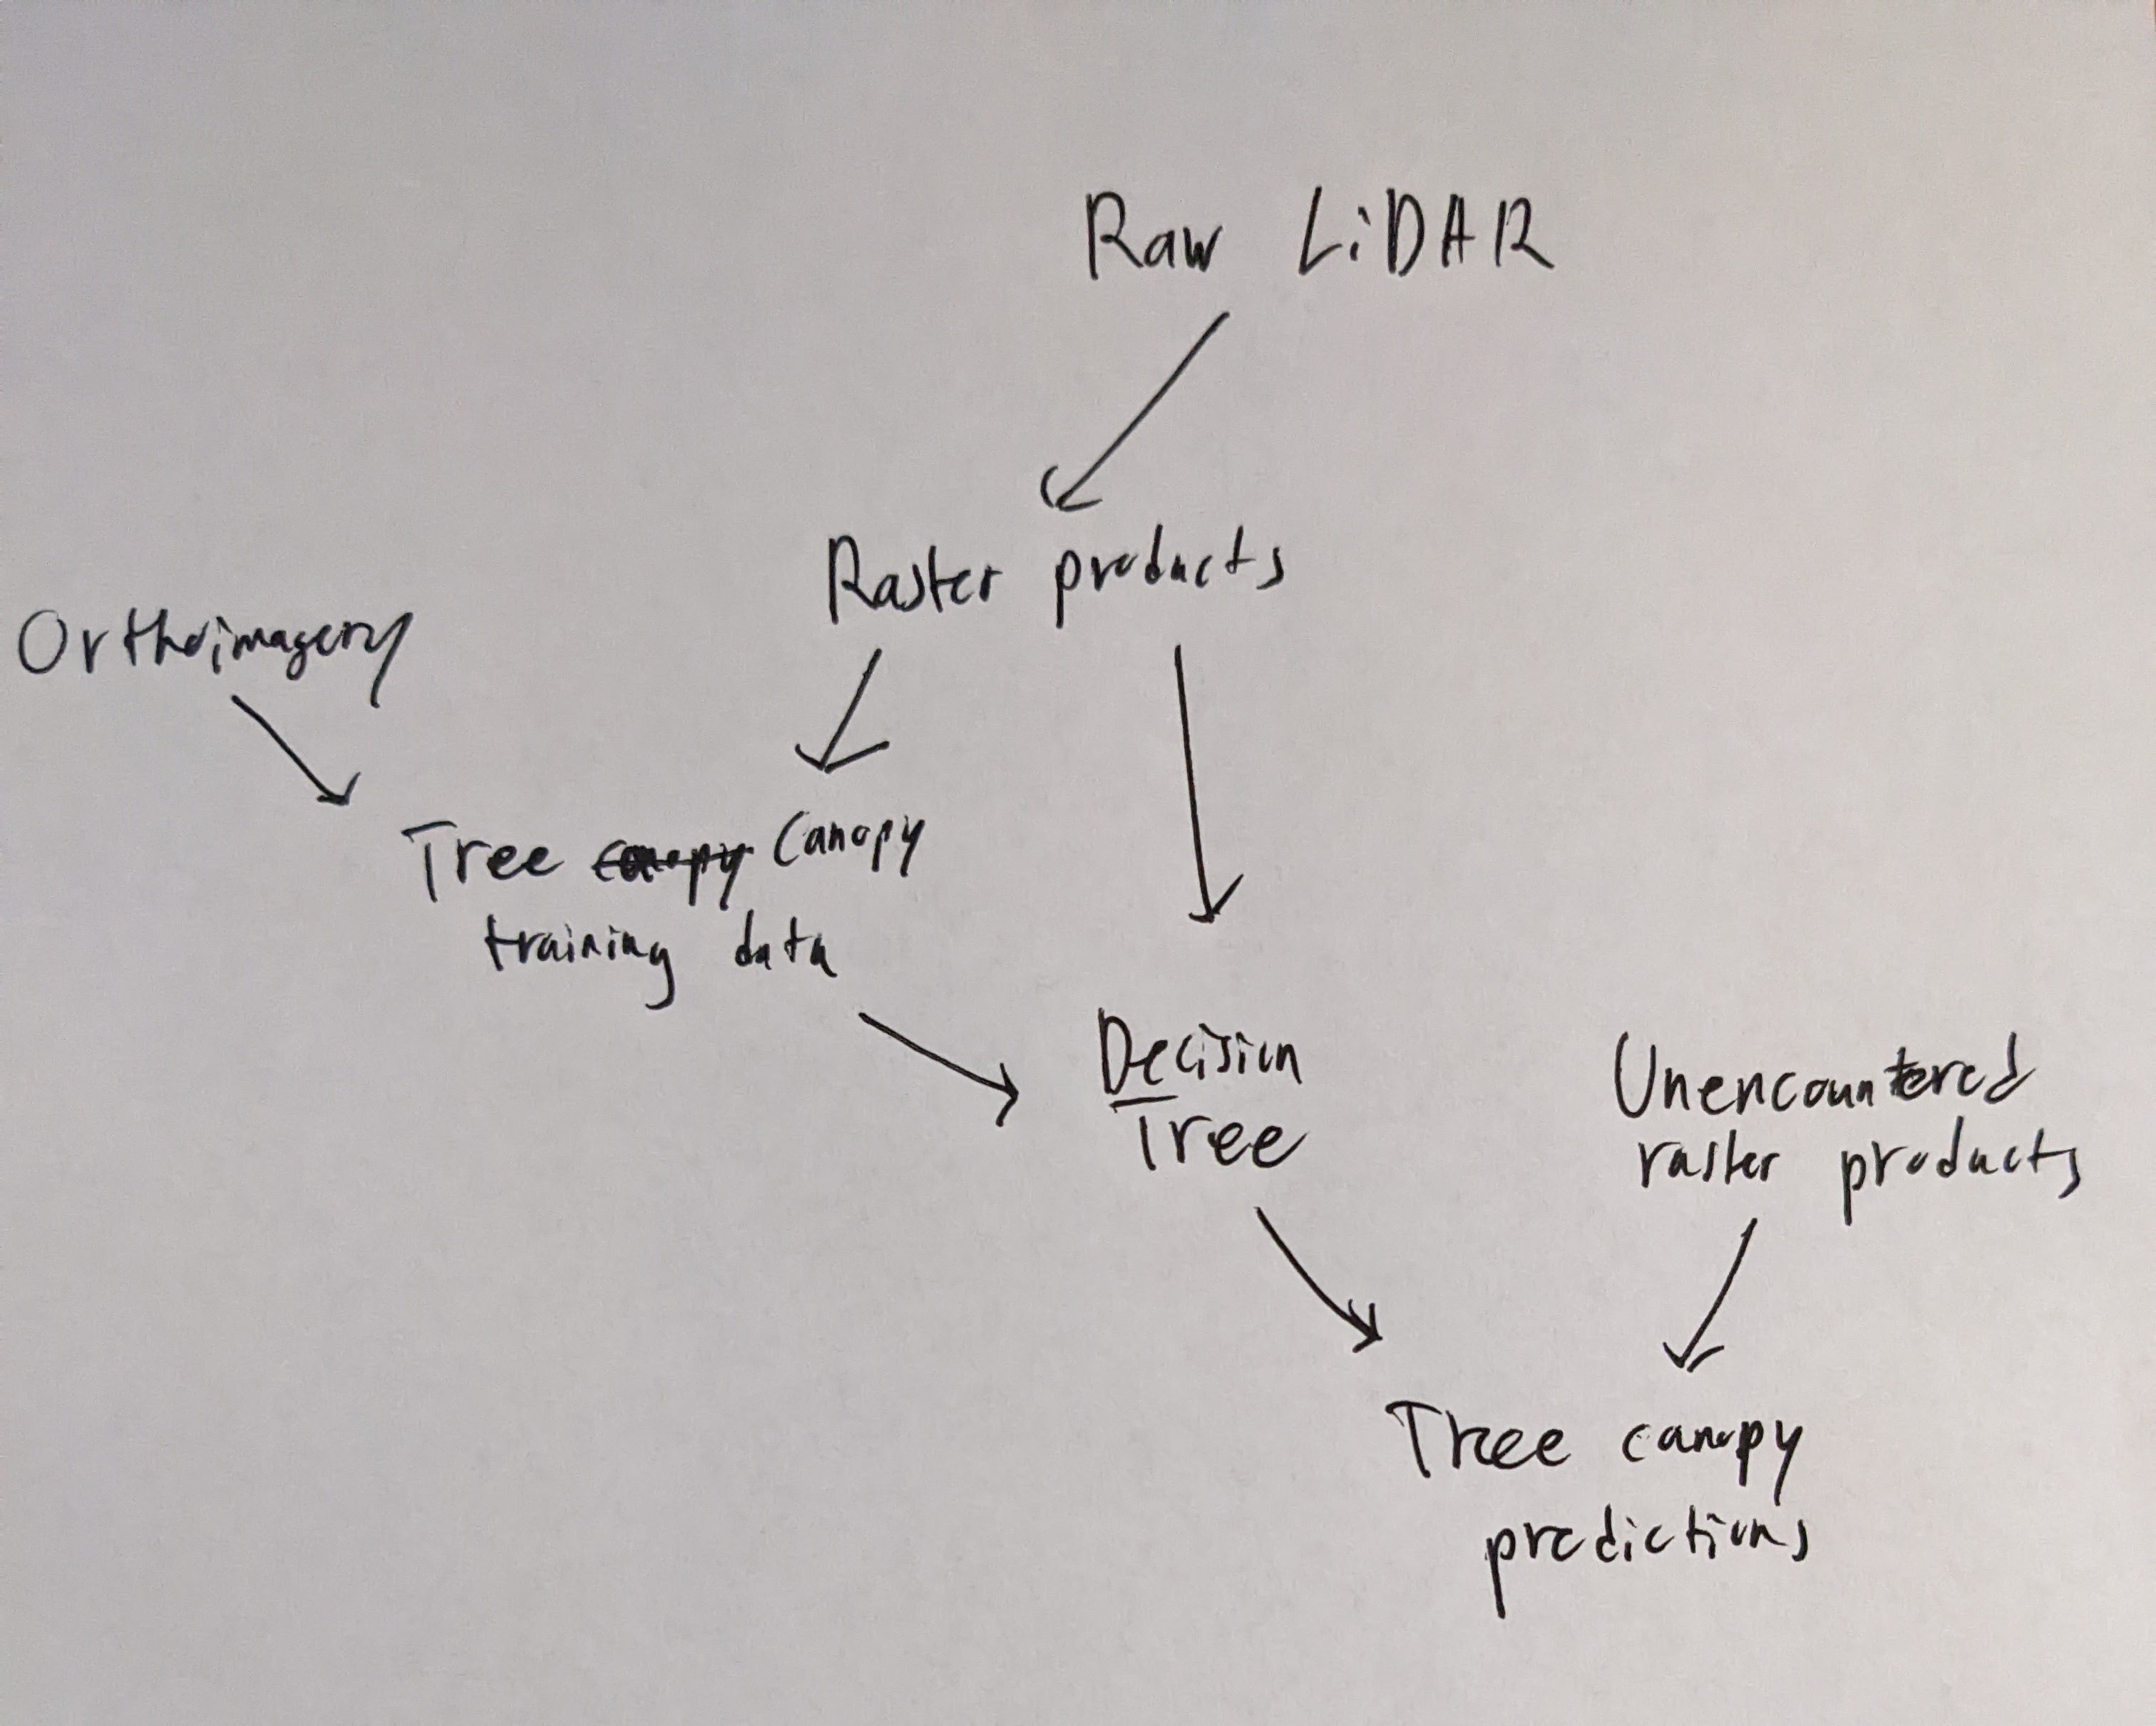 Raw LiDAR
Raster products
Orthoimagery
Tree canopy Canopy
training data
Decision
Tree
Unencountered
raster products
Tree canopy
predictions